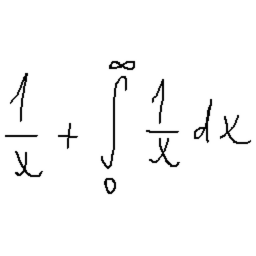 \frac{1}{x} + \int_{0}^{\infty} \frac{1}{x} dx